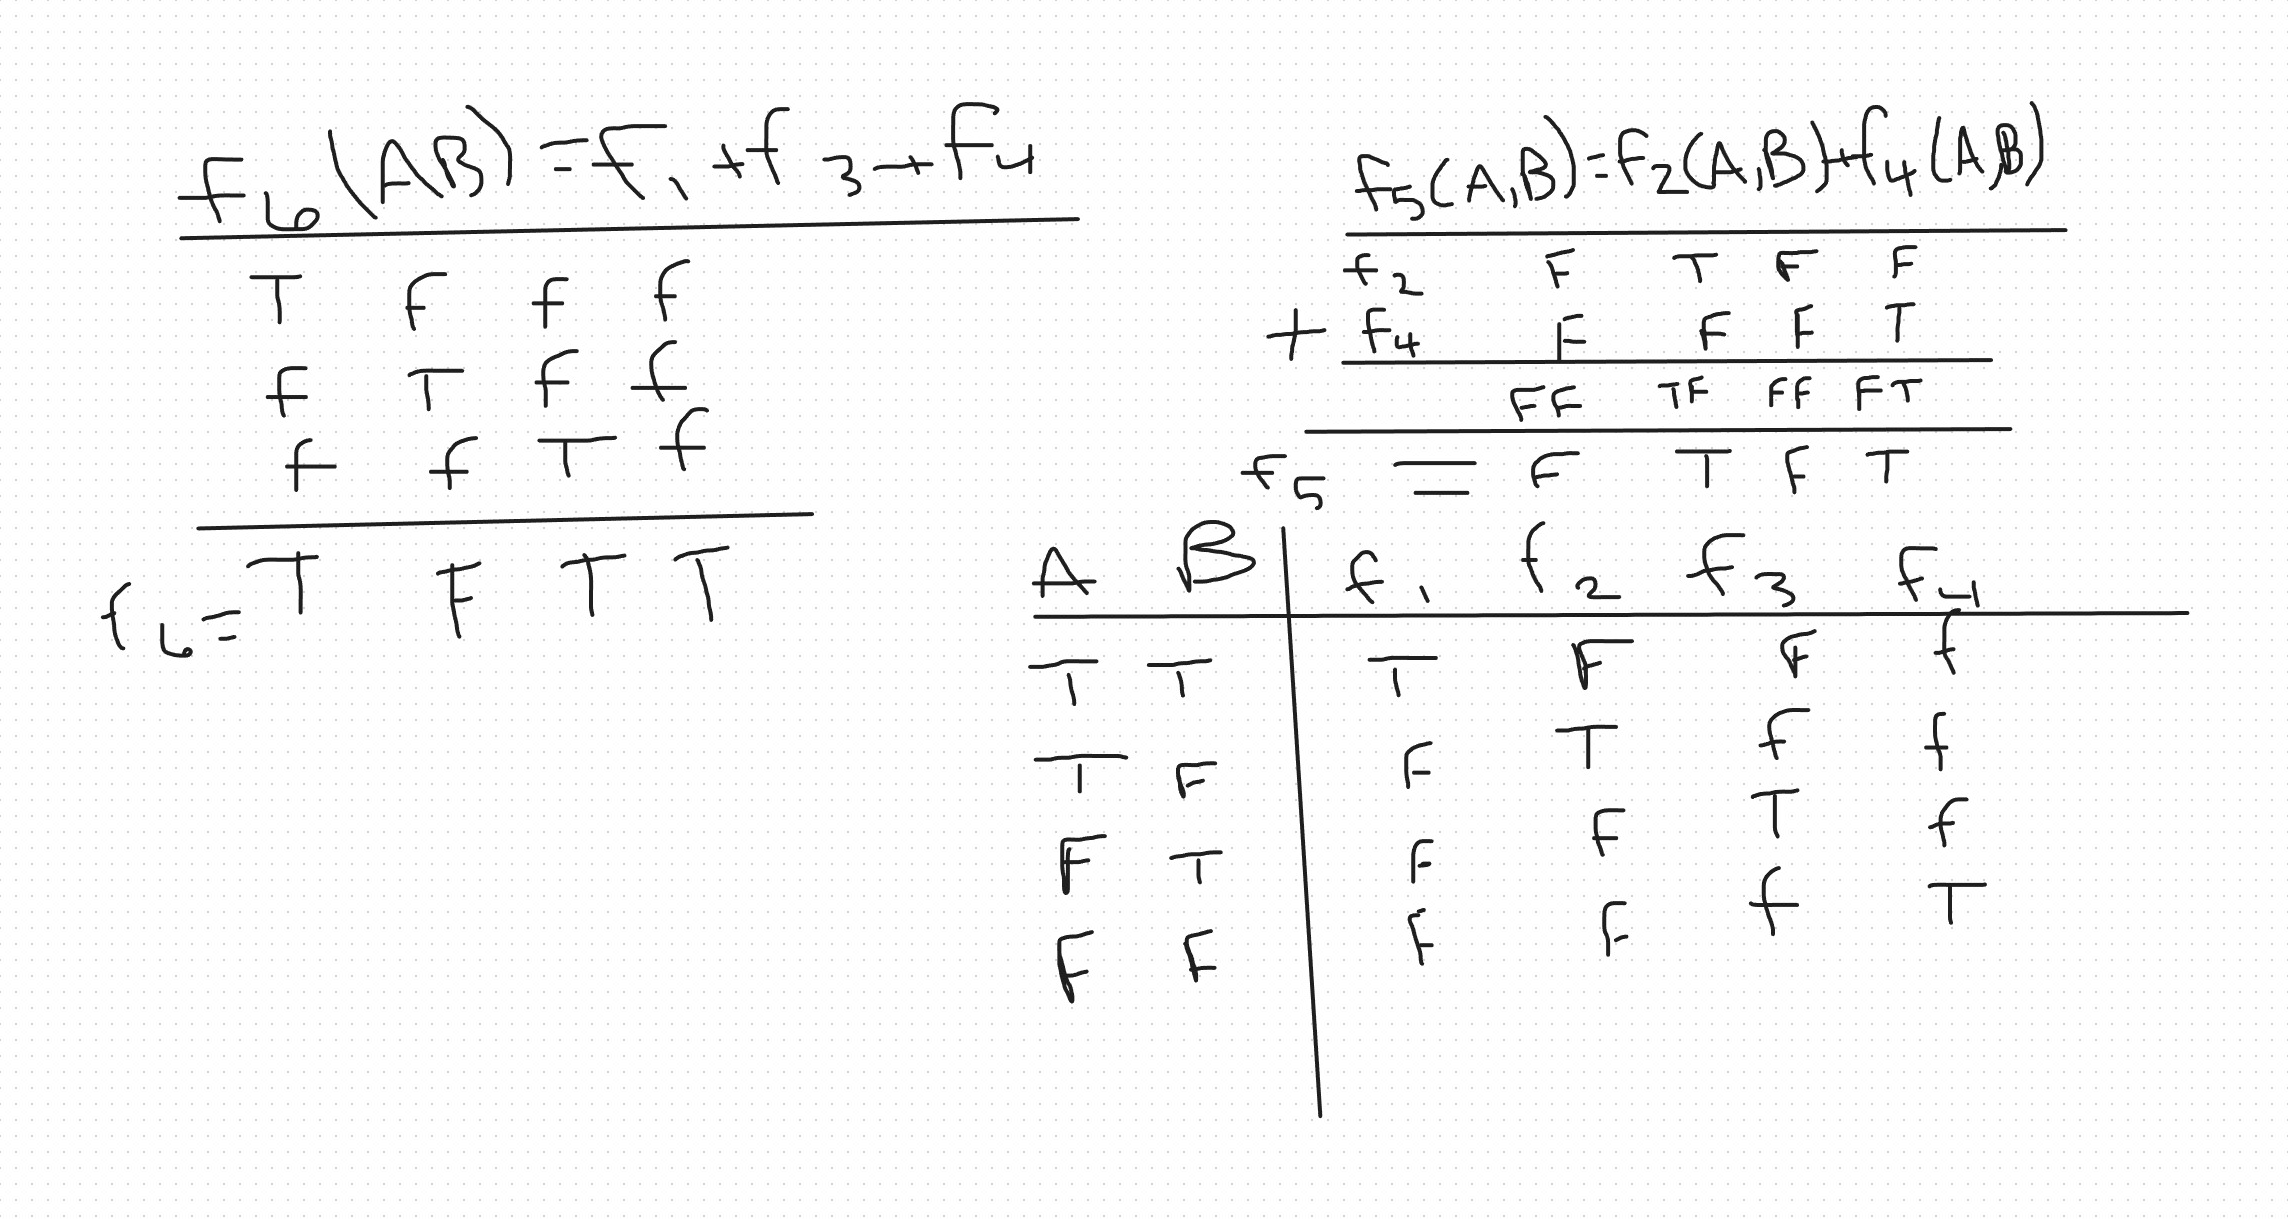 f6(AB) = F1 + f3 + F4
T F f f
F T f f
f f T f
f6 = T F T T
f5(A,B) = F2(A,B) + f4(A,B)
f2 F T F F
+ F4 F F F T
FF TF FF FT
f5 = F T F T
A B f1 f2 f3 F4
T T T F F f
T F F T f f
F T F F T f
F F F F f T